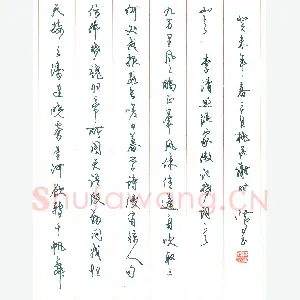 天接云濤連曉霧星河欲轉千帆舞
仿佛夢魂归帝所闻天语殷勤问我归
何处我报路長嗟日暮学诗谩有惊人句
九万里风鹏正举风休住蓬舟吹取三
山去 李清照渔家傲记梦词
癸未年春二月桃花谢时
Shufawang.CN